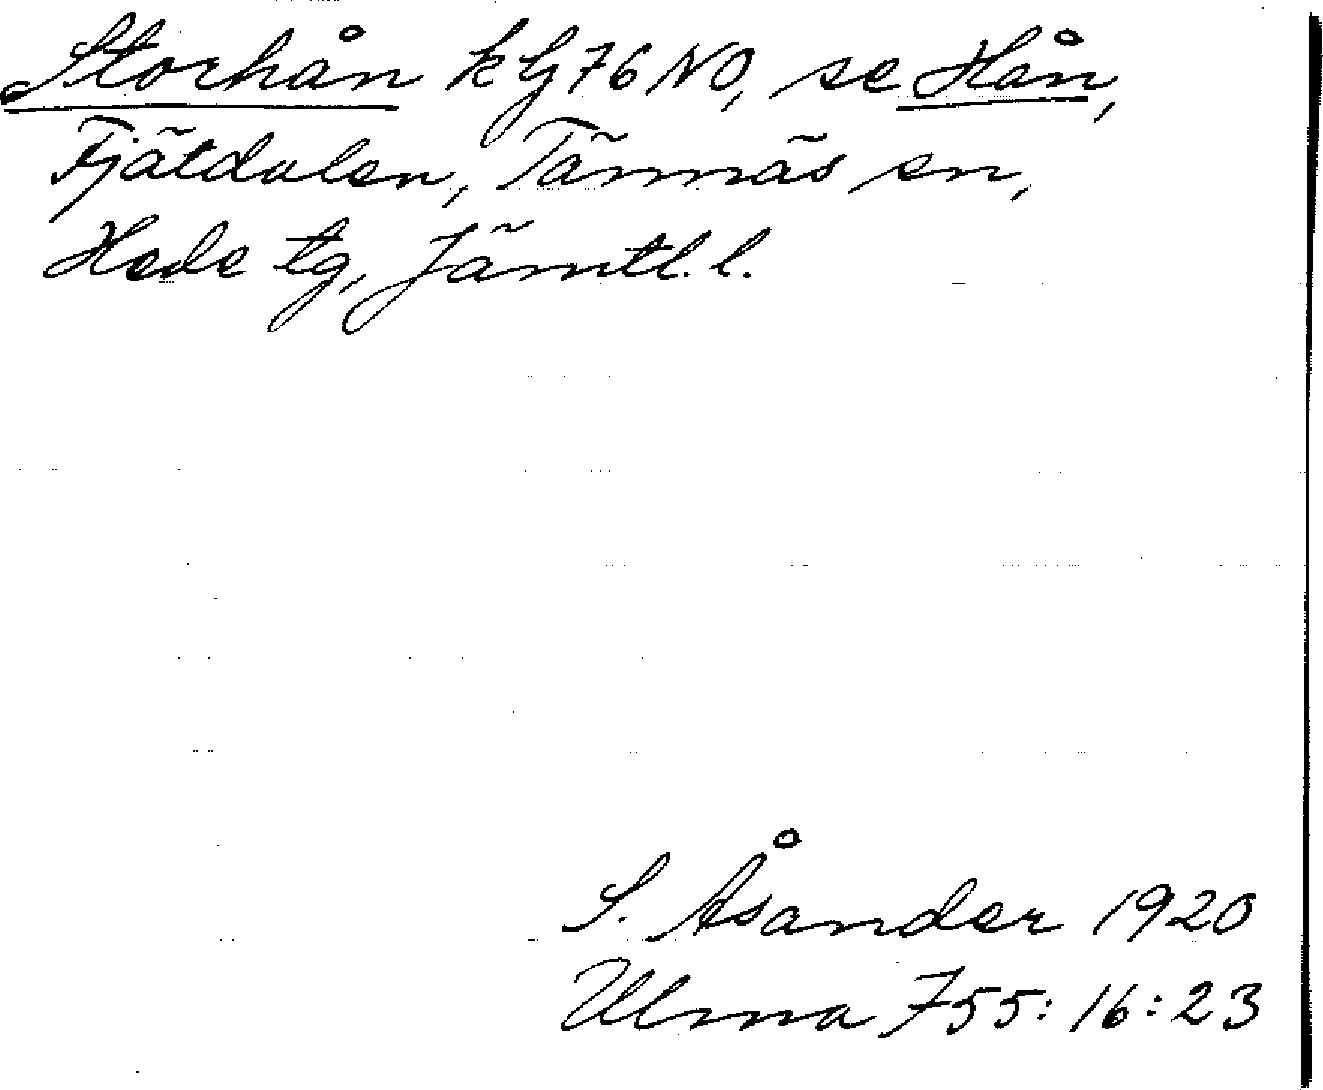 Storhån k G 76 NO, se Hån,
Fjätdalen, Tännäs sn,
Hede tg, Jämtl. l.
S. Åsander 1920
Ulma 755:16:23